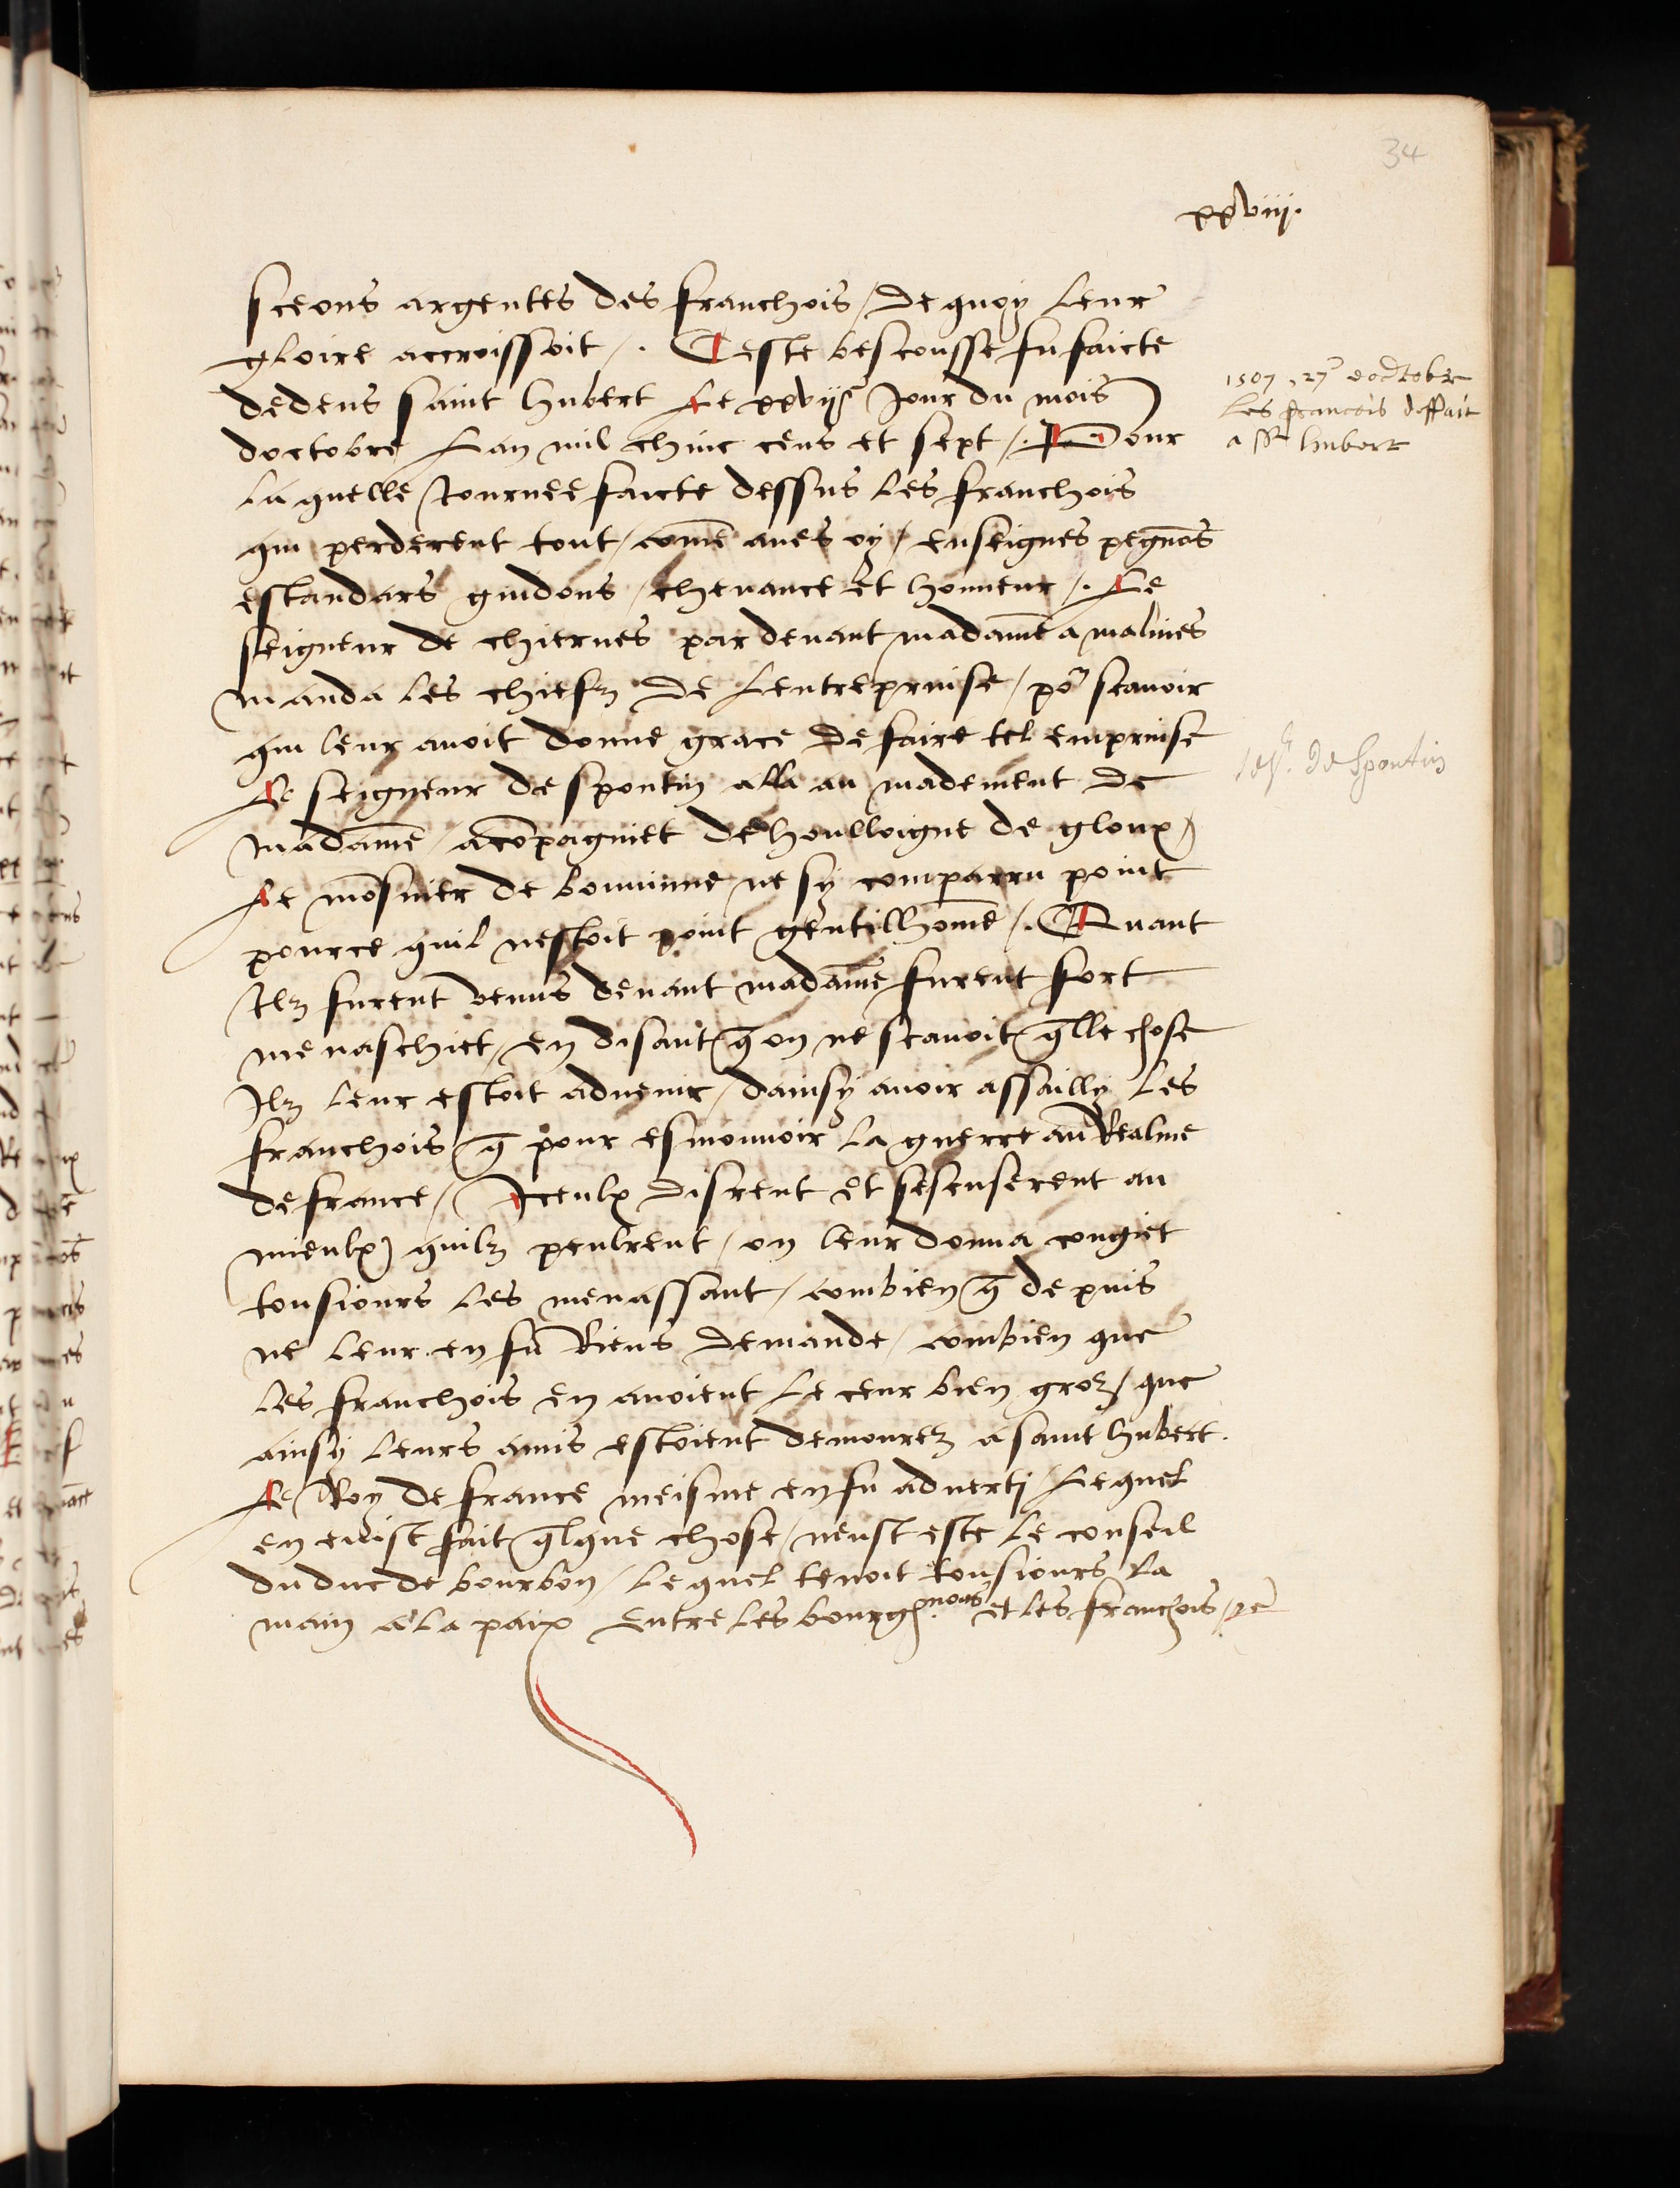 34
xxviij.
sceons argentes des franchois / de quoy leur
gloire accroissoit /. Ceste bescousse fu faicte
dedens saint hubert Le xxvije Jour du mois
doctobre Lan mil chinc cens et sept /. Pour
laquelle Journee faicte dessus les franchois
qui perderent tout / come aues oy / enseignes pegnos
estandars guidons / cheuance et honneur /. Le
seigneur de chierues par deuant madame a malines
manda les chiefz de Lentreprinse / por scauoir
qui leur auoit donne grace de faire tel emprinse
Le seigneur de spontin alla au madement de
madame / acompagniet de houlloigne de gloux /
Le mosnier de bouuinne ne sy comparru point
pource quil nestoit point gentilhome /. Quant
Ilz furent venus deuant madame furent fort
menaschiet / en disant q on ne scauoit qlle chose
Ilz leur estoit aduenir / dainsy auoir assailly les
franchois q pour esmouuoir la guerre au Realme
de france / Iceulx disrent et sescuserent au
mieulx quilz peulrent / on leur donna congiet
tousiours les menassant / combien q depuis
ne leur en fu Riens demande / combien que
les franchois en auoient le ceur bien groz / que
ainsy leurs amis estoient demourez a saint hubert.
Le Roy de france meisme en fu aduertj / Lequel
en euist fait qlque chose / neust este le conseil
du duc de bourbon / lequel tenoit tousiours la
main a la paix Entre les bourgnons et les franchois /
1507, 27 doctobre
Les francois deffait
a St hubert
Sgr. de Spontin